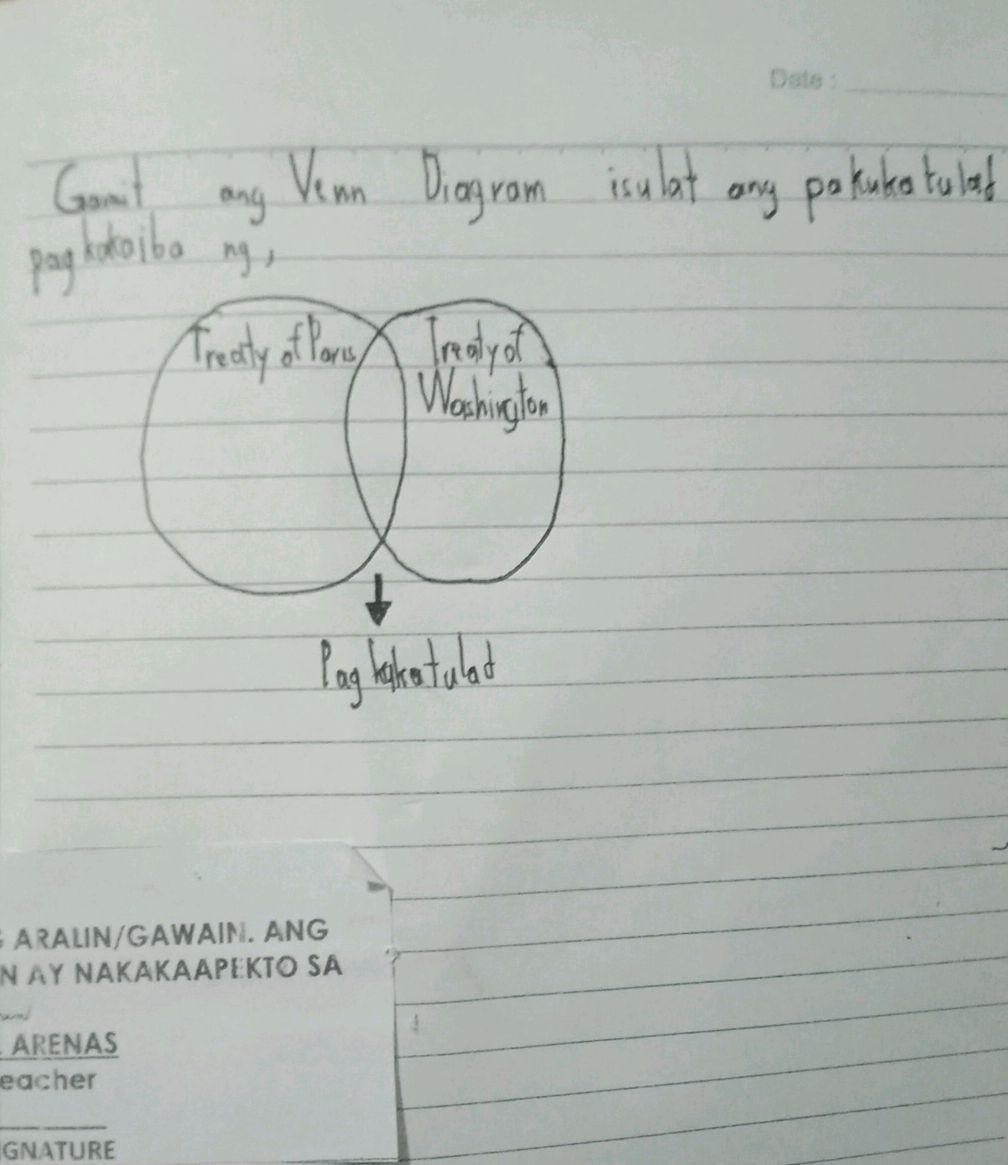 Date :
Gamit ang Venn Diagram isulat ang pakukatulad
pagkakaiba ng,
Treaty of Paris
Treaty of
Washington
Pagkakatulad
ARALIN/GAWAIN. ANG
N AY NAKAKAAPEKTO SA
ARENAS
eacher
IGNATURE